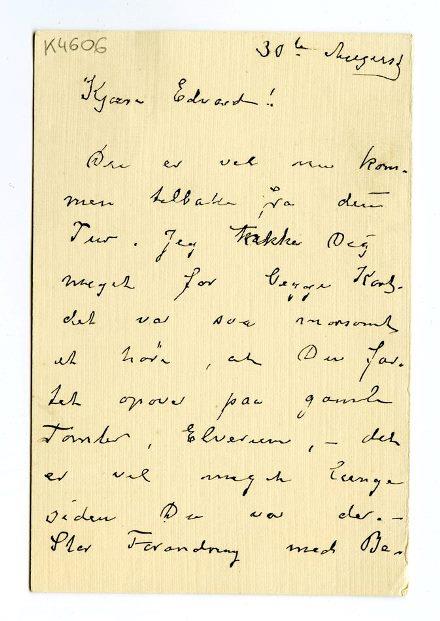 K4606
30te August
Kjære Edvard!
Du er vel nu kom-
men tilbake fra din
Tur. Jeg takke Dig
meget for begge Kort-
det var saa morsomt
at höre, at Du far-
tet opover paa gamle
Tomter, Elverum, – det
er vel meget længe
siden Du var der. –
Stor Forandring med Be-